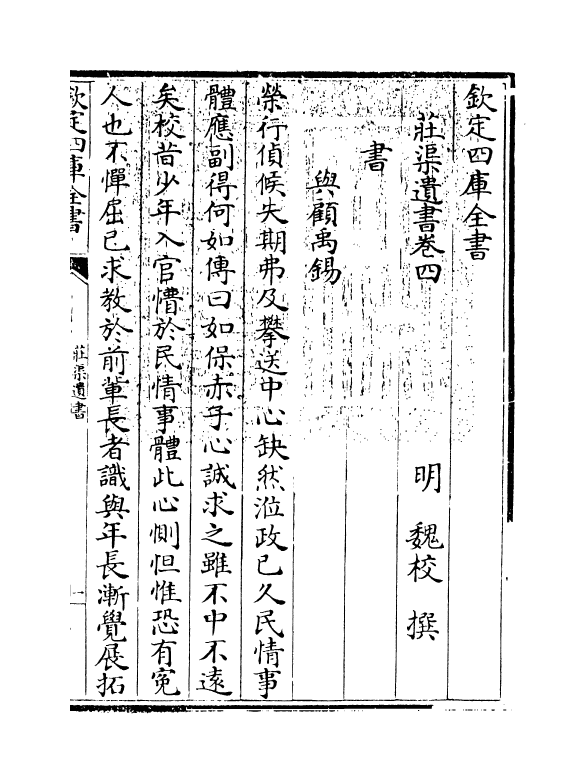 欽定四庫全書
莊渠遺書卷四
明 魏校 撰
書
與顧禹錫
榮行偵候失期弗及攀送中心缺然涖政已久民情事
體應副得何如傳曰如保赤子心誠求之雖不中不遠
矣校昔少年入官懵於民情事體此心惻怛惟恐有寃
人也不憚屈已求教於前輩長者識與年長漸覺展拓
欽定四庫全書
莊渠遺書
一